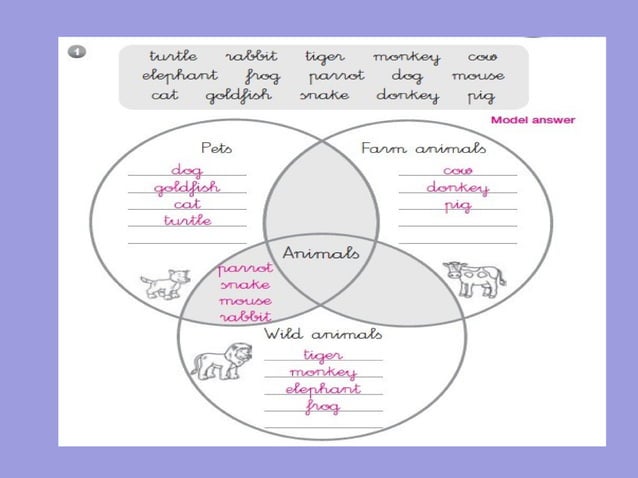 1
turtle rabbit tiger monkey cow
elephant frog parrot dog mouse
cat goldfish snake donkey pig
Model answer
Pets
dog
goldfish
cat
turtle
Farm animals
cow
donkey
pig
Animals
parrot
snake
mouse
rabbit
Wild animals
tiger
monkey
elephant
frog